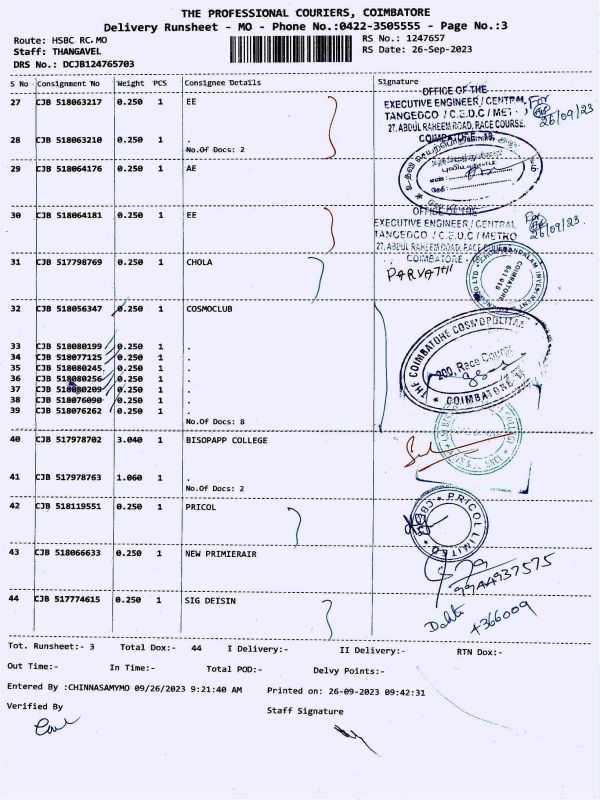 THE PROFESSIONAL COURIERS, COIMBATORE
Delivery Runsheet - MO - Phone No.:0422-3505555 - Page No.:3
Route: HSBC RC.MO
RS No.: 1247657
Staff: THANGAVEL
RS Date: 26-Sep-2023
DRS No.: DCJB124765703
S No Consignment No Weight PCS Consignee Details Signature
27 CJB 518063217 0.250 1 EE
OFFICE OF THE
EXECUTIVE ENGINEER / CENTRAL
TANGEDCO / C.E.D.C / METRO
27, ABDUL RAHEEM ROAD, RACE COURSE.
COIMBATORE - 18.
For
26/09/23
28 CJB 518063210 0.250 1 .
No.Of Docs: 2
29 CJB 518064176 0.250 1 AE
30 CJB 518064181 0.250 1 EE
OFFICE OF THE
EXECUTIVE ENGINEER / CENTRAL
TANGEDCO / C.E.D.C / METRO
27, ABDUL RAHEEM ROAD, RACE COURSE
COIMBATORE -
For
26/09/23.
31 CJB 517798769 0.250 1 CHOLA
PARVATHI
COIMBATORE
641 018
32 CJB 518056347 0.250 1 COSMOCLUB
33 CJB 518080199 0.250 1 .
34 CJB 518077125 0.250 1 .
35 CJB 518080245 0.250 1 .
36 CJB 518080256 0.250 1 .
37 CJB 518080209 0.250 1 .
38 CJB 518076090 0.250 1 .
39 CJB 518076262 0.250 1 .
No.Of Docs: 8
THE COIMBATORE COSMOPOLITAN
200, Race Course
COIMBATORE
40 CJB 517978702 3.040 1 BISOPAPP COLLEGE
41 CJB 517978763 1.060 1 .
No.Of Docs: 2
42 CJB 518119551 0.250 1 PRICOL
PRICOL LIMITED
CBE
43 CJB 518066633 0.250 1 NEW PRIMIERAIR
9944937575
44 CJB 517774615 0.250 1 SIG DEISIN
4366009
Tot. Runsheet:- 3 Total Dox:- 44 I Delivery:- II Delivery:- RTN Dox:-
Out Time:- In Time:- Total POD:- Delvy Points:-
Entered By :CHINNASAMYMO 09/26/2023 9:21:40 AM Printed on: 26-09-2023 09:42:31
Verified By
Staff Signature